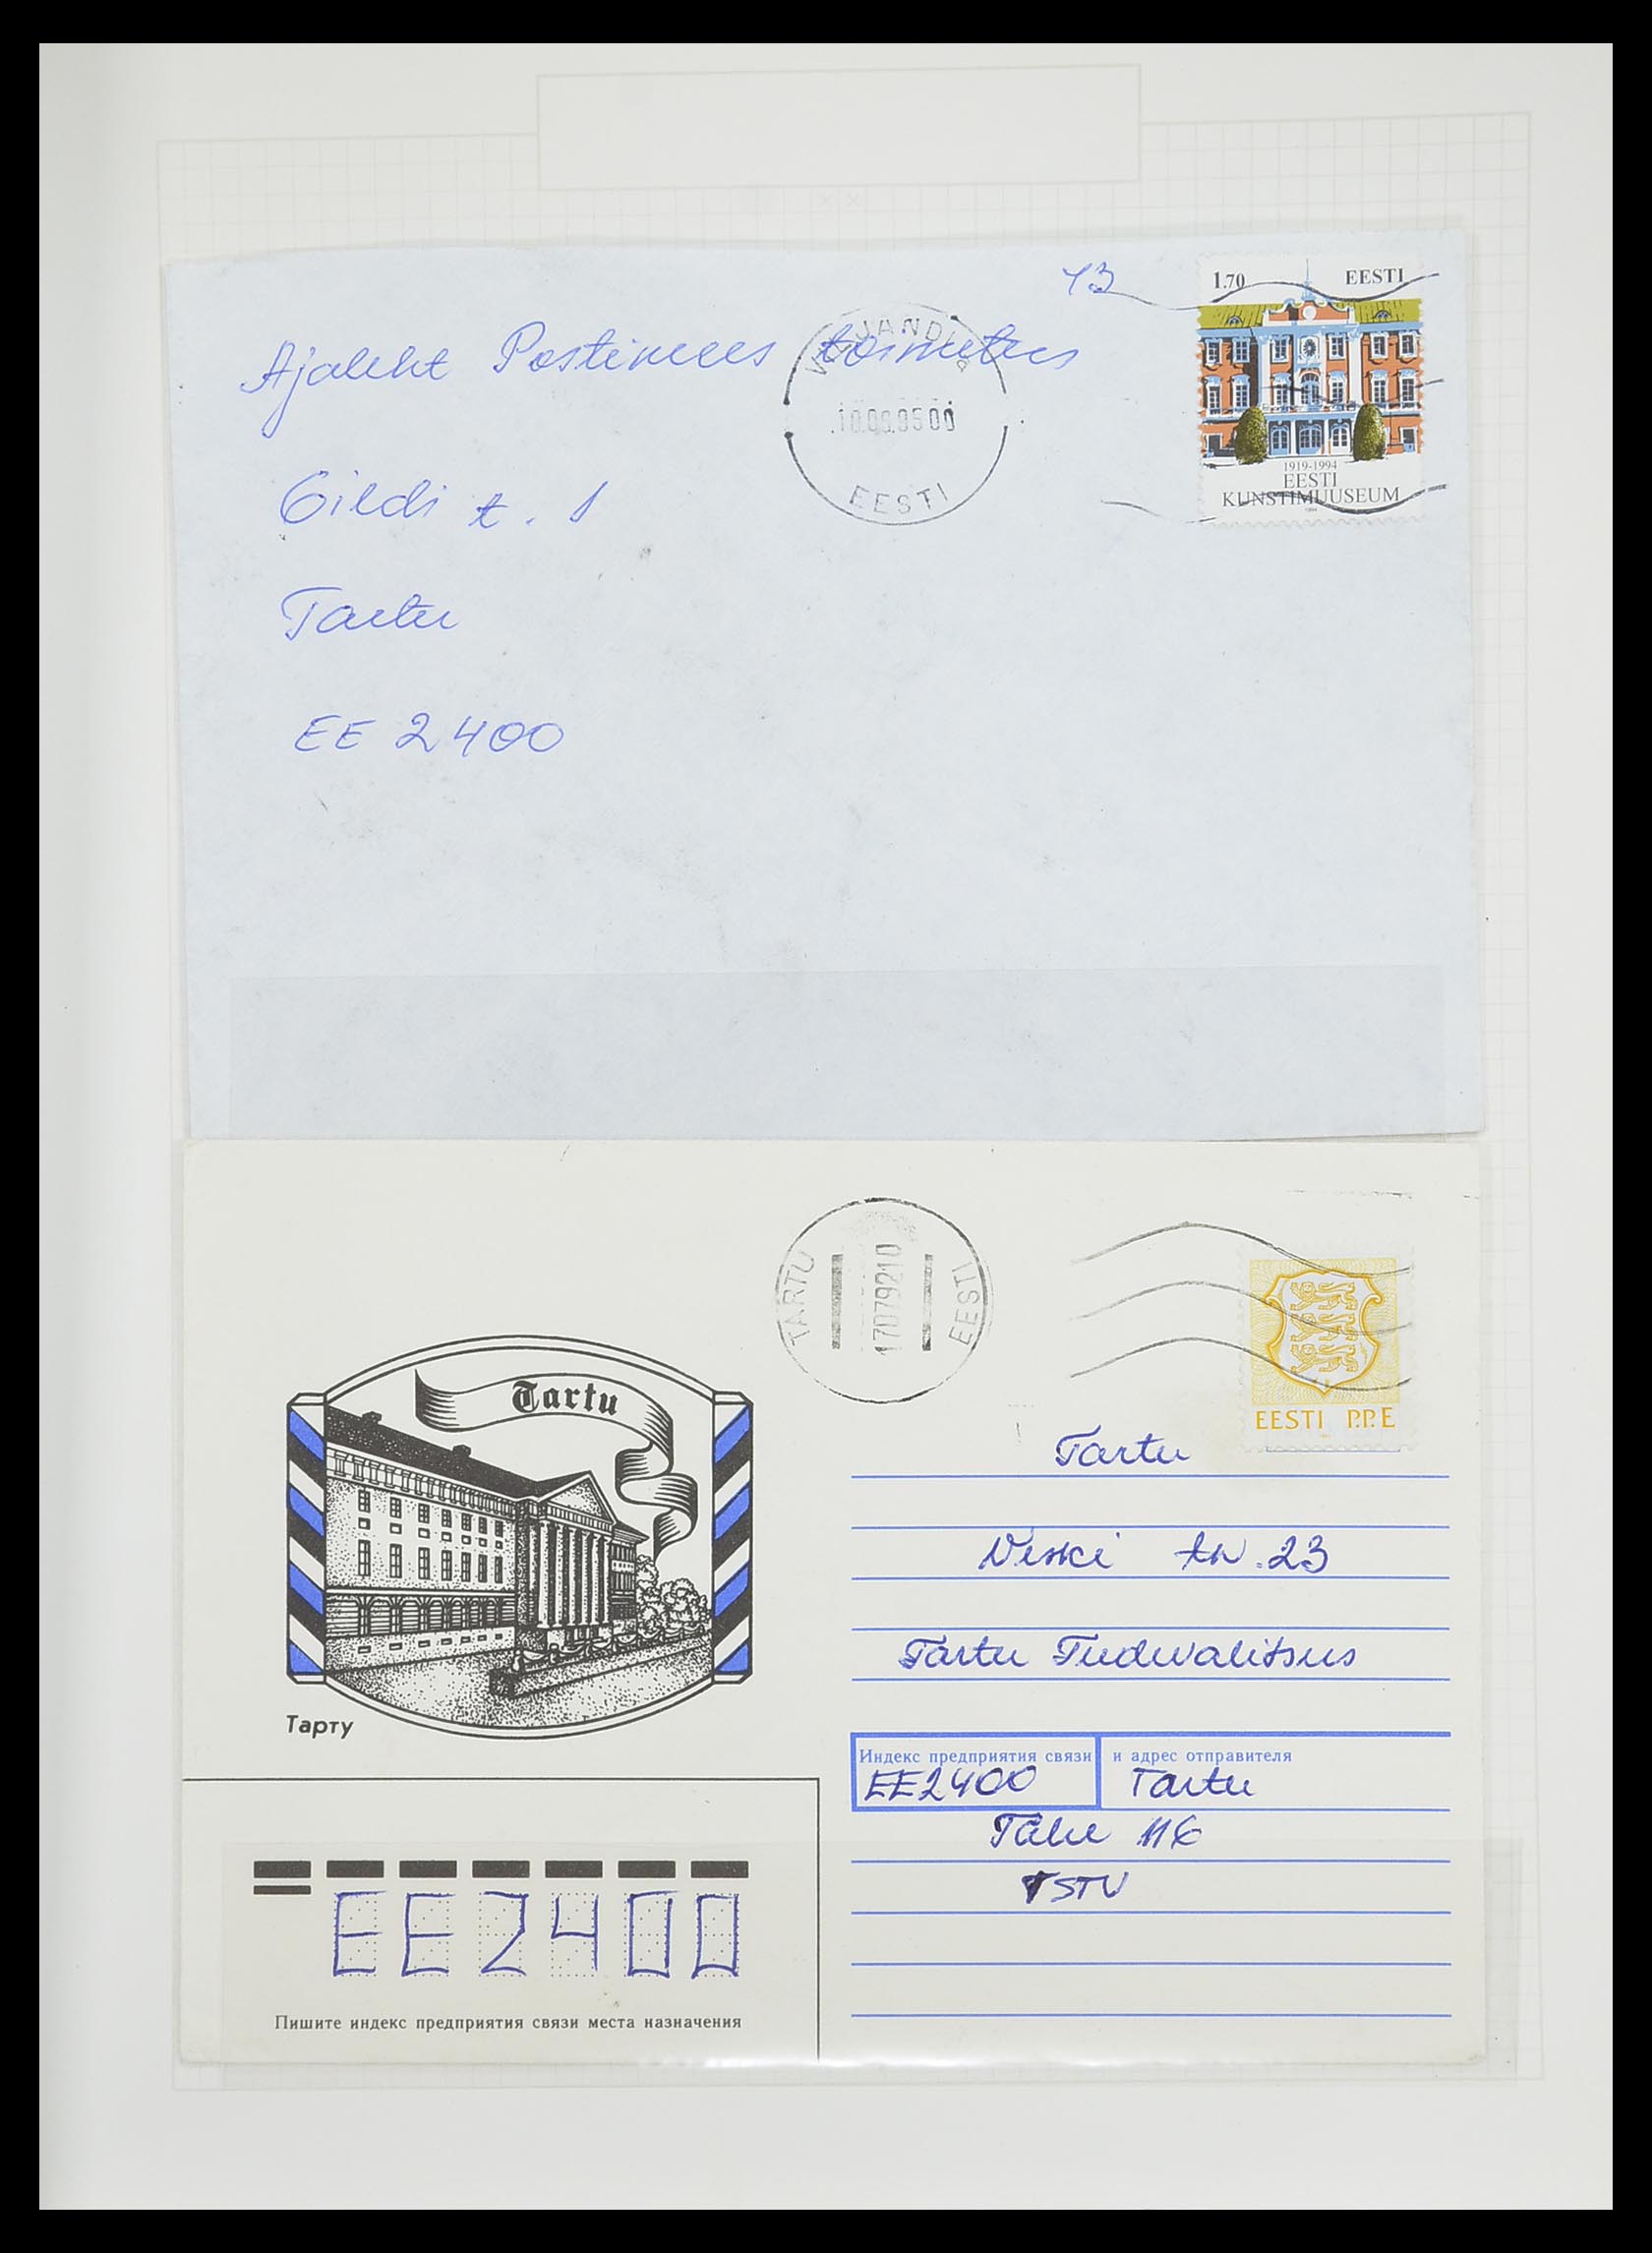 43
1.70 EESTI
Ajaleht Postimees toimetus
VILJANDI
10.06.95 00
EESTI
1919-1994
EESTI
KUNSTIMUUSEUM
Gildi t. 1
Tartu
EE 2400
TARTU
17079210
EESTI
EESTI P.P.E
Tartu
Tartu
tn. 23
Tartu
Тарту
Индекс предприятия связи и адрес отправителя
EE2400 Tartu
Tähe 116
EE2400
Пишите индекс предприятия связи места назначения